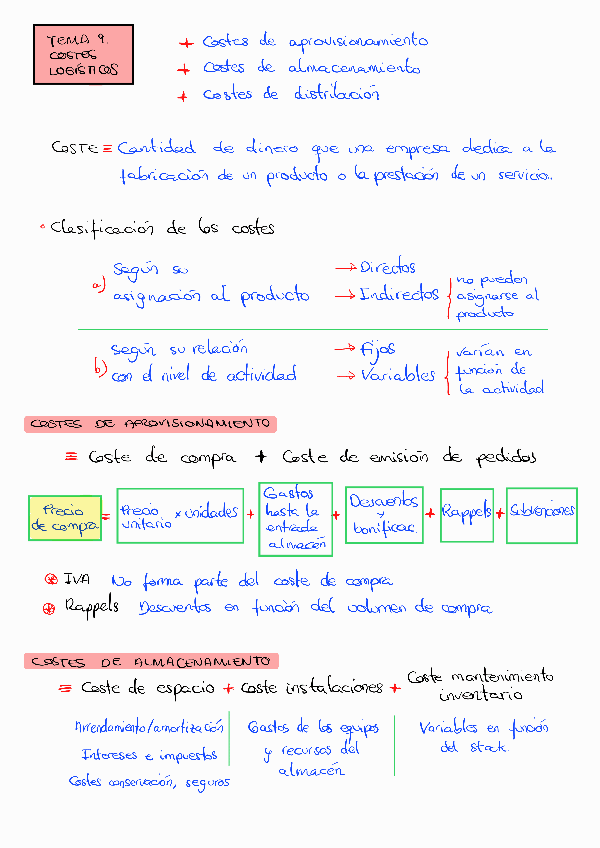 TEMA 9.
COSTES
LOGÍSTICOS
+ Costes de aprovisionamiento
+ Costes de almacenamiento
+ Costes de distribución
COSTE ≡ Cantidad de dinero que una empresa dedica a la
fabricación de un producto o la prestación de un servicio.
• Clasificación de los costes
a) Según su
asignación al producto
→ Directos
→ Indirectos
no pueden
asignarse al
producto
b) Según su relación
con el nivel de actividad
→ Fijos
→ Variables
varían en
función de
la actividad
COSTES DE APROVISIONAMIENTO
= Coste de compra + Coste de emisión de pedidos
Precio
de compra
=
Precio
unitario
x unidades
+
Gastos
hasta la
entrada
almacén
+
Descuentos
y
bonificac.
+
Rappels
+
Subvenciones
IVA No forma parte del coste de compra
Rappels Descuentos en función del volumen de compra
COSTES DE ALMACENAMIENTO
= Coste de espacio + Coste instalaciones + Coste mantenimiento
inventario
Arrendamiento/amortización
Intereses e impuestos
Costes conservación, seguros
Gastos de los equipos
y recursos del
almacén
Variables en función
del stock.